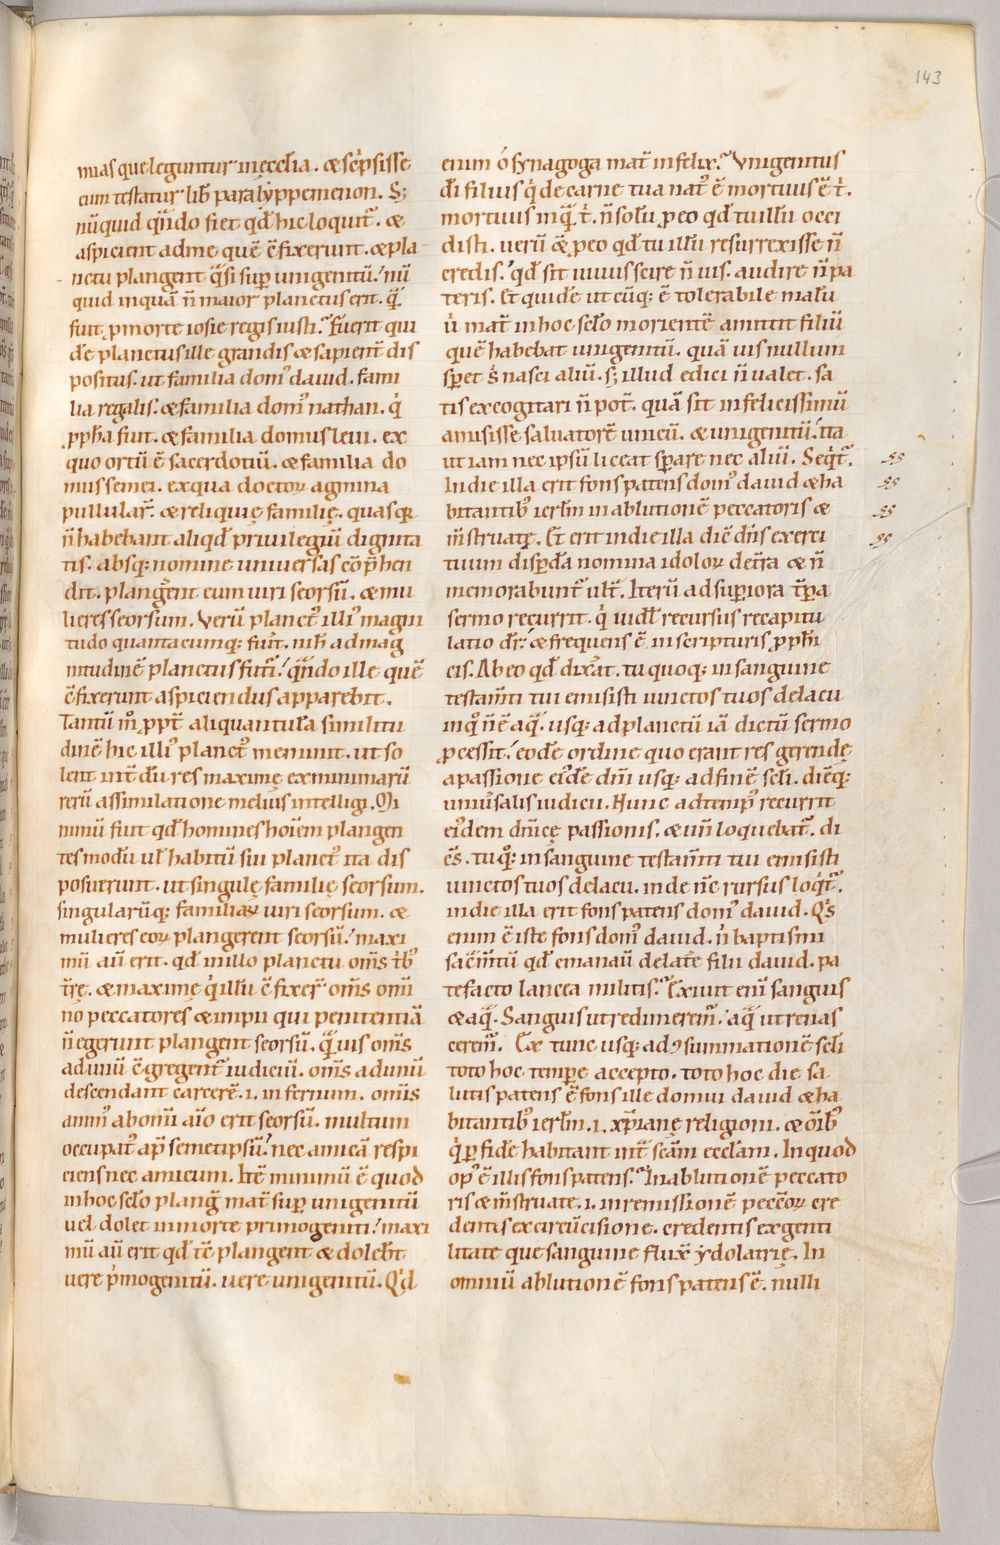 143
mias que leguntur in eccl̄ia. & sc̄psisse
eum testatur lib̄ paralyppemenon. S;
nūquid q̄ndo fiet qd̄ hic loquit̄. &
aspicient ad me quē c̄fixerunt. & pla
nctu plangent q̄si sup̱ unigenitū. nū
quid inquā n̄ maior planctus erit. q̄
fuit ꝓ morte iosie regis iusti? Fuerit qui
dē planctus ille grandis & sapient̄ dis
positus. ut familia domꝰ dauid. fami
lia regalis. & familia domꝰ nathan. q̇
ꝓph̄a fuit. & familia domus leui. ex
quo ortū ē sacerdotiū. & familia do
mus semei. ex qua doctoꝝ agmina
pullular̄. & reliquię familię. quasꝗ
n̄ habebant aliqd̄ priuilegiū dignita
tis. absq; nomine uniuersas cōp̄hen
dit. plangent eum uiri seorsū. & mu
lieres seorsum. Verū planctꝰ illiꝰ magni
tudo quantacumq; fuit. nih̄ ad mag
nitudinē planctus futuri. q̄ndo ille quē
c̄fixerunt aspiciendus apparebit.
Tantū m̄ ꝓpt̄ aliquantulā similitu
dinē hic illiꝰ planctꝰ meminit. ut so
lent int̄dū res maximę ex minimarū
rerū assimilatione melius intelligi. Mi
nimū fuit qd̄ homines hoīem plangen
tes modū ul̄ habitū sui planctꝰ ita dis
posuerunt. ut singulę familię seorsum.
singularūq; familiaꝝ uiri seorsum. &
mulieres eoꝝ plangerent seorsū. maxi
mū aū erit. qd̄ in illo planctu om̄s t̄bꝰ
t̄rę. & maxime q̇ illū c̄fixer̄ om̄s om̄i
no peccatores & impii qui penitentiā
n̄ egerunt plangent seorsū. q̄uis om̄s
ad unū c̄gregent̄ iudiciū. om̄s ad unū
descendant carcerē .i. infernum. om̄is
animꝰ ab om̄i aīo erit seorsū. multum
occupatꝰ ap̄ semetipsū. nec amicā respi
ciens nec amicum. Itē minimū ē quod
in hoc sclo plangit mat̄ sup̱ unigenitū
uel dolet in morte primogeniti. maxi
mū aū erit qd̄ tē plangent & dolebt̄
uere p̄mogenitū. uere unigenitū. Qd̄
enim ó synagoga mat̄ infelix? Vnigenitus
dī filius q̇ de carne tua natꝰ ē mortuus ē t̄.
mortuus inq̄ t̄. n̄ solū ꝓ eo qd̄ tu illū occi
disti. uerū & ꝓ eo qd̄ tu illū resurrexisse n̄
credis. qd̄ sit uiuus scire n̄ uis. audire n̄ pa
teris. Et quidē utcūq; ē tolerabile malū
ū mat̄ in hoc sclo morientē amittit filiū
quē habebat unigenitū. quā uis nullum
sp̱et s nasci aliū. s; illud edici n̄ ualet. sa
tis excogitari n̄ pot̄. quā sit infelicissimū
amisisse saluatorē unicū. & unigenitū. ita
ut iam nec ipsū liceat sp̱are nec aliū. Seqt̄.
In die illa erit fons patens domꝰ dauid & ha
bitantibꝰ ierlm̄ in ablutionē peccatoris &
m̄struatę. Et erit in die illa diē dn̄s exerci
tuum disp̱dā nomina idoloꝝ de t̄ra & n̄
memorabunt̄ ult̄. Iterū ad sup̱iora t̄p̱a
sermo recurrit. q̇ uidl̄ recursus recapitu
latio dr̄. & frequens ē in scripturis ꝓph̄i
cis. Ab eo qd̄ dixerat. tu quoq; in sanguine
testam̄ti tui emisisti uinctos tuos de lacu
in qͦ n̄ ē aq̄. usq; ad planctū iā dictū sermo
ꝓcessit. eodē ordine quo erant res gerendę
a passione eidē dn̄i usq; ad finē scl̄i. diēq;
uniūsalis iudicii. Nunc ad tempꝰ recurrit
eiꝰdem dn̄icę passionis. & un̄ loquebat̄. di
cēs. tu qͦq; in sanguine testam̄ti tui emisisti
uinctos tuos de lacu. inde nc̄ rursus loqt̄.
in die illa erit fons patens domꝰ dauid. Qˢ
enim ē iste fons domꝰ dauid. n̄ baptismi
sac̄m̄tū qd̄ emanauit de lat̄e filii dauid. pa
tefacto lancea militis? Exiuit eni sanguis
& aq̄. Sanguis ut redimerem̄. aq̄ ut renas
cerem̄. Ex tunc usq; ad ꝯsummationē scl̄i
toto hoc temp̱e accepto. toto hoc die sa
lutis patens ē fons ille domui dauid & ha
bitantibꝰ ierlm̄ .i. xp̄ianę religioni. & om̄ibꝰ
q̇ p̱ fidē habitant int̄ scām eccl̄am. In quod
opꝰ ē illis fons patens? In ablutionē peccato
ris & m̄struatę .i. in remissionē peccoꝝ cre
dentis ex circūcisione. credentis ex genti
litate que sanguine fluxit ydolatrię. In
omniū ablutionē fons patens ē. nulli